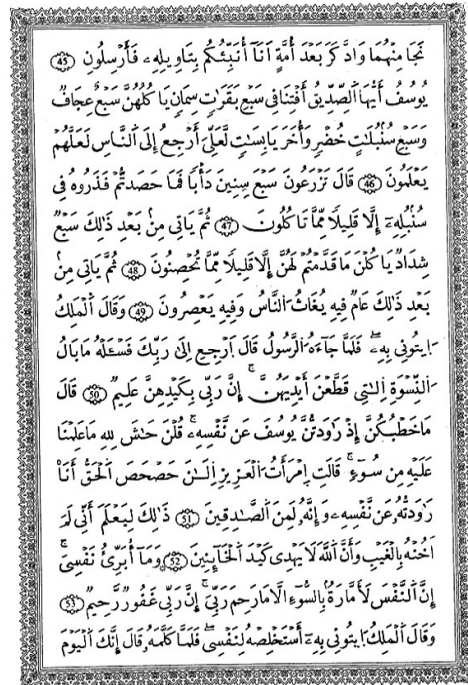 نَجَا مِنْهُمَا وَادَّكَرَ بَعْدَ أُمَّةٍ أَنَآ أُنَبِّئُكُم بِتَاوِيلِهِۦ فَأَرْسِلُونِ 45
يُوسُفُ أَيُّهَا الصِّدِّيقُ أَفْتِنَا فِي سَبْعِ بَقَرَٰتٍ سِمَانٍ يَاكُلُهُنَّ سَبْعٌ عِجَافٌ
وَسَبْعِ سُنۢبُلَٰتٍ خُضْرٍ وَأُخَرَ يَابِسَٰتٍ لَّعَلِّيَ أَرْجِعُ إِلَى النَّاسِ لَعَلَّهُمْ
يَعْلَمُونَ 46 قَالَ تَزْرَعُونَ سَبْعَ سِنِينَ دَأْبًا فَمَا حَصَدتُّمْ فَذَرُوهُ فِي
سُنۢبُلِهِۦٓ إِلَّا قَلِيلًا مِّمَّا تَاكُلُونَ 47 ثُمَّ يَاتِي مِنۢ بَعْدِ ذَٰلِكَ سَبْعٌ
شِدَادٌ يَاكُلْنَ مَا قَدَّمْتُمْ لَهُنَّ إِلَّا قَلِيلًا مِّمَّا تُحْصِنُونَ 48 ثُمَّ يَاتِي مِنۢ
بَعْدِ ذَٰلِكَ عَامٌ فِيهِ يُغَاثُ النَّاسُ وَفِيهِ يَعْصِرُونَ 49 وَقَالَ الْمَلِكُ
ايتُونِي بِهِۦ فَلَمَّا جَآءَهُ الرَّسُولُ قَالَ ارْجِعِ اِلَىٰ رَبِّكَ فَسْـَٔلْهُ مَا بَالُ
النِّسْوَةِ الَّٰتِي قَطَّعْنَ أَيْدِيَهُنَّ إِنَّ رَبِّي بِكَيْدِهِنَّ عَلِيمٌ 50 قَالَ
مَا خَطْبُكُنَّ إِذْ رَٰوَدتُّنَّ يُوسُفَ عَن نَّفْسِهِۦ قُلْنَ حَٰشَ لِلهِ مَا عَلِمْنَا
عَلَيْهِ مِن سُوٓءٍ قَالَتِ امْرَأَتُ الْعَزِيزِ الْـَٰٔنَ حَصْحَصَ الْحَقُّ أَنَا۠
رَٰوَدتُّهُۥ عَن نَّفْسِهِۦ وَإِنَّهُۥ لَمِنَ الصَّٰدِقِينَ 51 ذَٰلِكَ لِيَعْلَمَ أَنِّي لَمْ
أَخُنْهُ بِالْغَيْبِ وَأَنَّ اللَّهَ لَا يَهْدِي كَيْدَ الْخَآئِنِينَ 52 وَمَآ أُبَرِّئُ نَفْسِيَ
إِنَّ النَّفْسَ لَأَمَّارَةٌۢ بِالسُّوٓءِ الَّا مَا رَحِمَ رَبِّيَ إِنَّ رَبِّي غَفُورٌ رَّحِيمٌ 53
وَقَالَ الْمَلِكُ ايتُونِي بِهِۦٓ أَسْتَخْلِصْهُ لِنَفْسِي فَلَمَّا كَلَّمَهُۥ قَالَ إِنَّكَ الْيَوْمَ